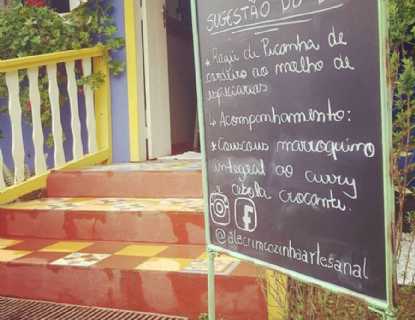 SUGESTÃO DO
Ragú de Picanha de
cordeiro ao molho de
especiarias
Acompanhamento:
Couscous marroquino
integral ao curry
e cebola crocante.